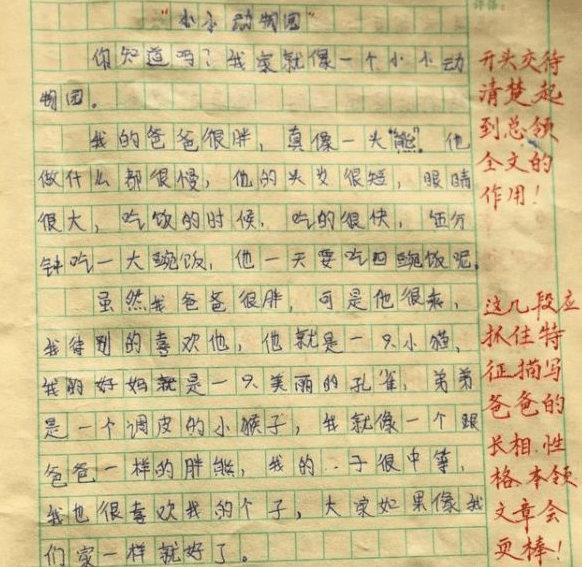 “小小动物园”
你知道吗？我家就像一个小小动
物园。
我的爸爸很胖，真像一头“熊”。他
做什么都很慢，他的头发很短，眼睛
很大，吃饭的时候，吃的很快，五分
钟吃一大碗饭，他一天要吃四碗饭呢。
虽然我爸爸很胖，可是他很乖，
我特别的喜欢他，他就是一只小猫，
我的好妈就是一只美丽的孔雀，弟弟
是一个调皮的小猴子，我就像一个跟
爸爸一样的胖熊，我的 子很中等，
我也很喜欢我的个子，大家如果像我
们家一样就好了。
评语：
开头交待
清楚起
到总领
全文的
作用！
这几段应
抓住特
征描写
爸爸的
长相.性
格.本领
文章会
更棒！